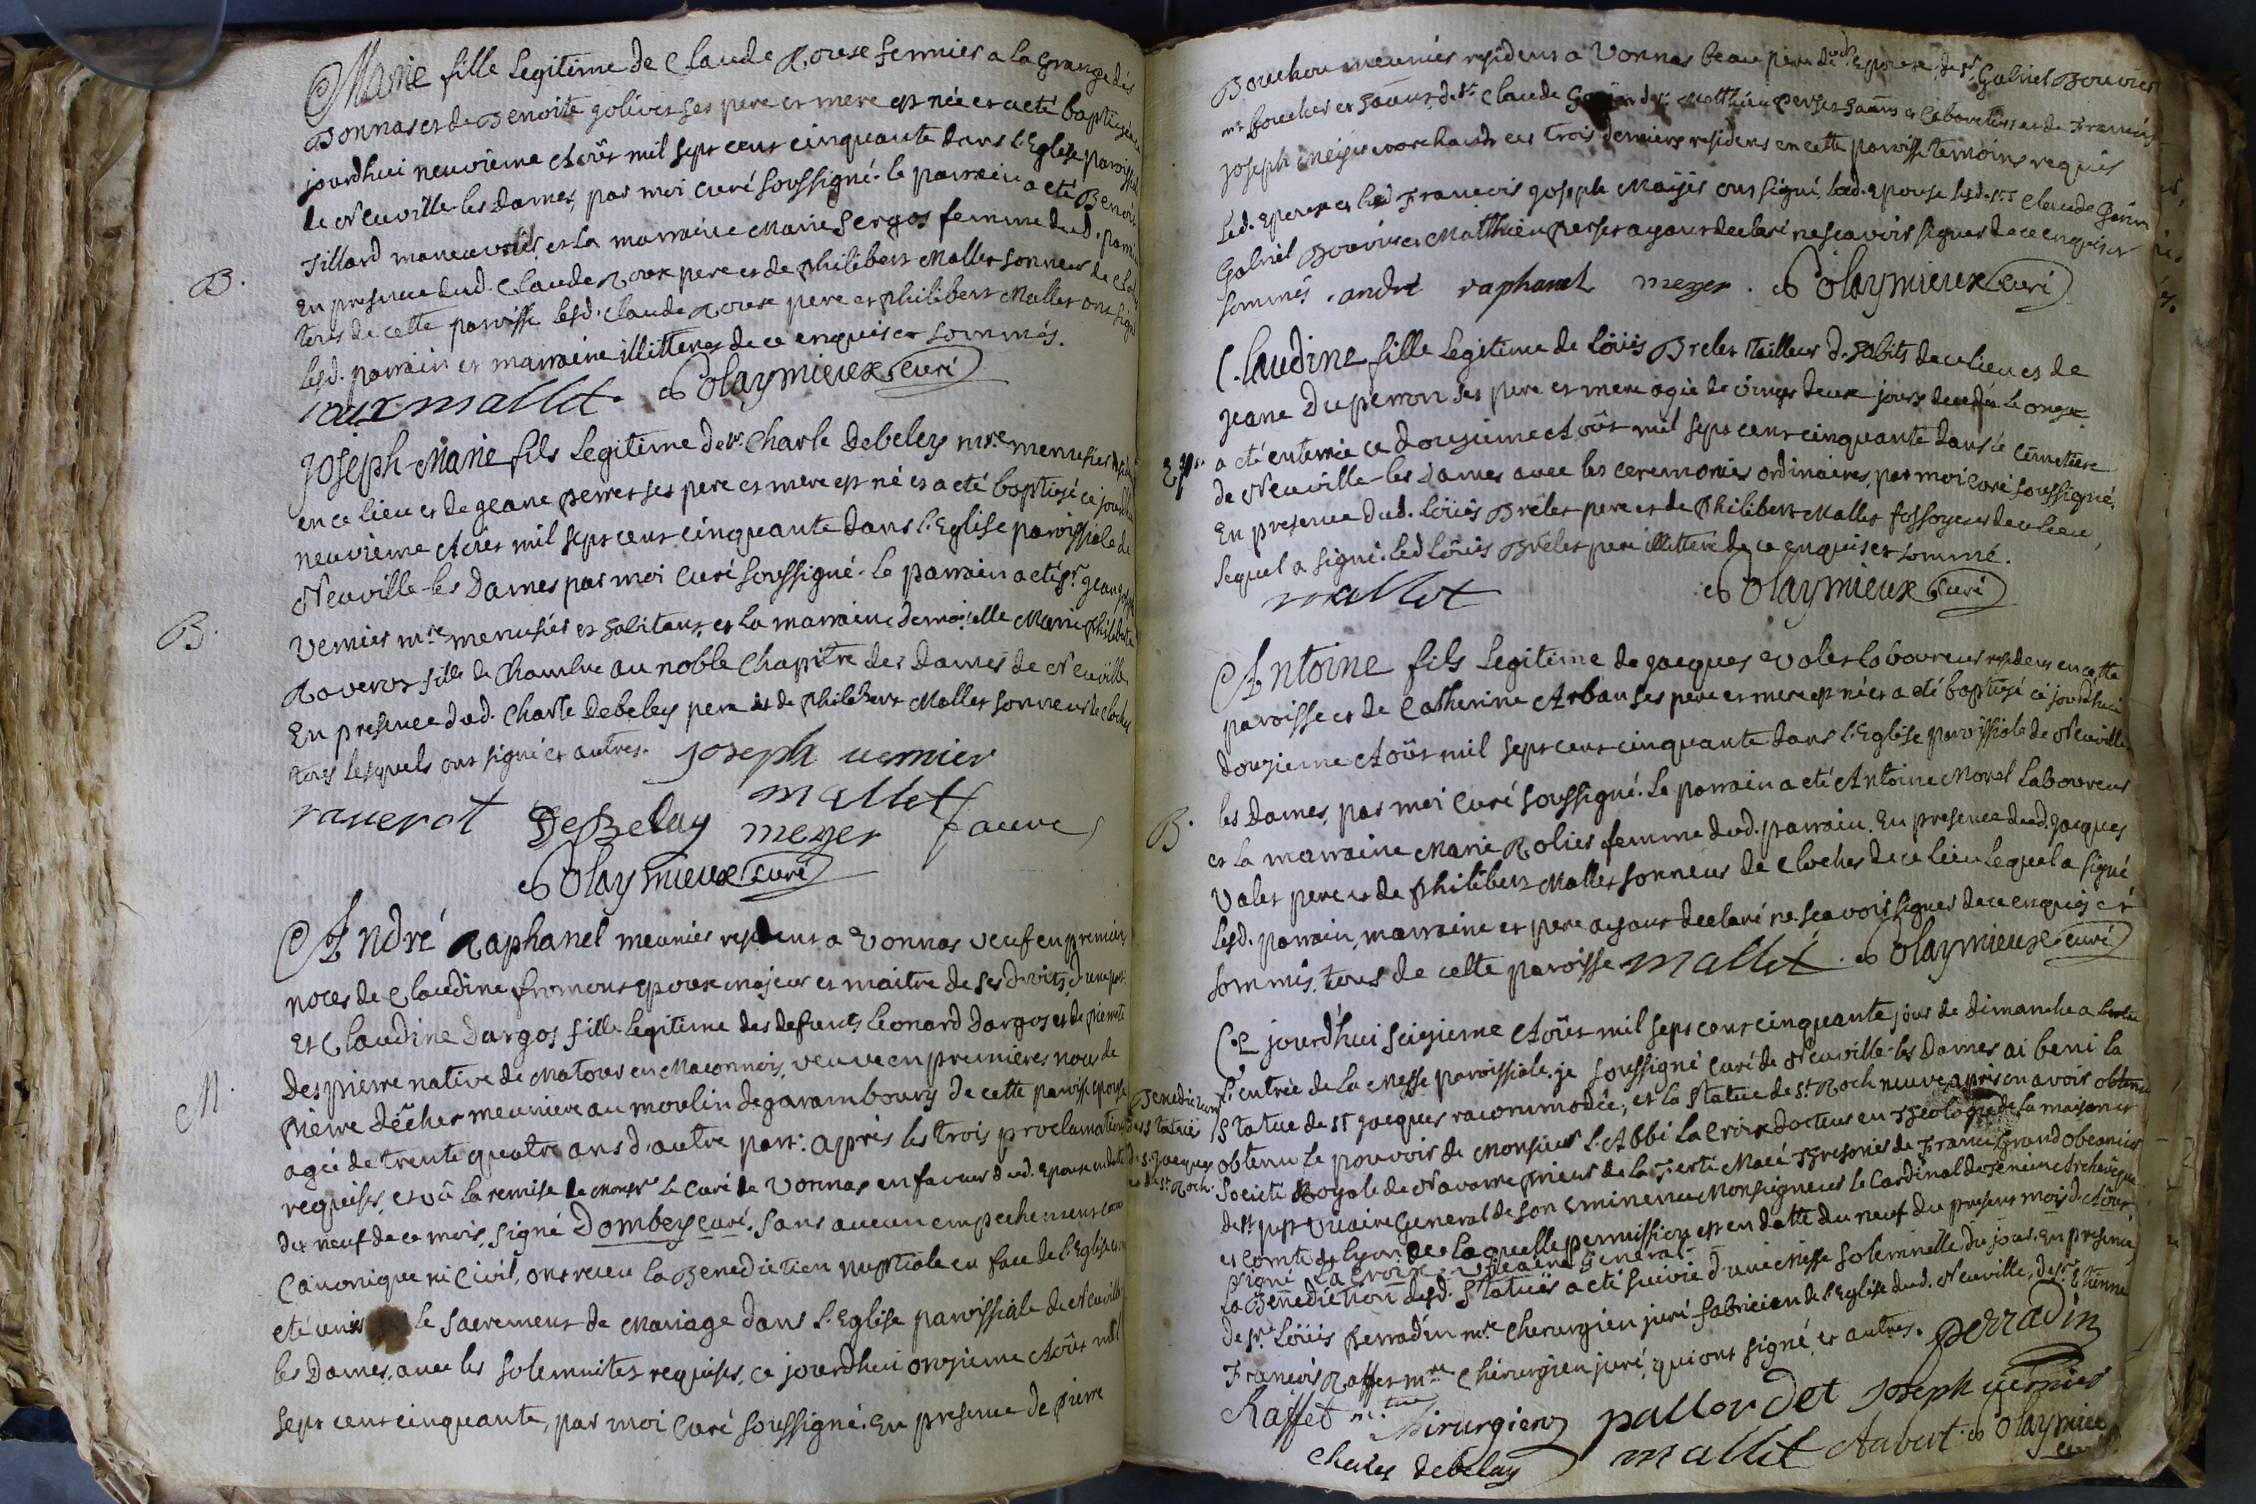 Marie fille Legitime de Claude Roux fermier a la Grange des
Bonnas et de Benoite golivet ses pere et mere est née et a eté baptisée ce
jourdhui neuvième Août mil sept cent cinquante dans l'Eglise paroissiale
de Neuville-les Dames, par moi curé soussigné. le parrain a eté Benoit
Tillard manœuvre, et la marraine Marie Sergos femme dud. parrain
B.
En presence dud. Claude Roux pere et de philibert Mallet sonneur de cloches
tous de cette paroisse lesd. Claude Roux pere et philibert Mallet ont signé
lesd. parrain et marraine illitterés de ce enquis et sommés.
roux mallet. Colaymieux curé
Joseph-Marie fils Legitime de sr. Charle Debeley mre. menusier
en ce lieu et de jeane perret ses pere et mere est né et a eté baptisé ce jourdhui
neuvième Aout mil sept cent cinquante dans l'Eglise paroissiale de
Neuville-les Dames par moi curé soussigné. Le parrain a eté sr. jean joseph
B.
Vernier mre. menusier et habitant, et la marraine demoiselle Marie philiberte
Raverot fille de Chambre au noble Chapitre des Dames de Neuville
En presence dud. Charle Debeley pere et de philibert Mallet sonneur de cloches
tous lesquels ont signé et autres. Joseph vernier
raverot DeBelay mallet
meyer faure
Colaymieux curé
André Raphanel meunier resident a Vonnas veuf en premieres
noces de Claudine fromont epoux majeur et maitre de ses droits, d'une part
Et Claudine Dargos fille Legitime des defunts Leonard Dargos et de pierrette
Despierre native de Matour en Maconnois, veuve en premières noces de
M.
pierre dêcher meunier au moulin de garambourg de cette paroisse epouse
agée de trente quatre ans d'autre part: après les trois proclamations
requises, et vû la remise de Monsr. le Curé de Vonnas en faveur dud. Epoux en datte
du neuf de ce mois, signé Dombey curé. sans aucun empechement
Canonique ni Civil, ont receu la Benediction nuptiale en face de l'Eglise
eté unis le sacrement de Mariage dans l'Eglise paroissiale de Neuville
les Dames, avec les solemnitez requises, ce jourdhui onzieme Août mil
sept cent cinquante, par moi Curé soussigné. En presence de pierre
Bouchou meunier resident a Vonnas beau pere dud. Epoux, de sr. Gabriel Bouvier
mr. boucher et de sr. Claude Matthieu perset et de francois
joseph Meijer marchand ces trois derniers residens en cette paroisse temoins requis
Led. Epoux et led francois joseph Meijer ont signé, lad. Epouse lesd. srs Claude
Gabriel Bouvier et Matthieu perset ayant declaré ne scavoir signer de ce enquis et
sommés. andré raphanel meyer. Colaymieux curé
Claudine fille Legitime de Loüis Brelet tailleur d'habits de ce lieu et de
jeane Duperron ses pere et mere agée de vingt deux jours decedée le onze
a eté enterrée ce douzieme Août mil sept cent cinquante dans le cimetiere
de Neuville-les Dames avec les ceremonies ordinaires, par moi Curé soussigné.
En presence dud. Loüis Brelet pere et de philibert Mallet fossoyeur de ce lieu,
lequel a signé. led Loüis Brelet pere illitteré de ce enquis et sommé.
mallet Colaymieux curé
Antoine fils Legitime de jacques Valet laboureur resident en cette
paroisse et de Catherine Arban ses pere et mere est né et a eté baptisé ce jourdhui
douzieme Août mil sept cent cinquante dans l'Eglise paroissiale de Neuville
B.
les Dames, par moi Curé soussigné. Le parrain a eté Antoine Morel Laboureur
et la marraine Marie Rolier femme dud. parrain. En presence dud. jacques
Valet pere et de philibert Mallet sonneur de cloches de ce lieu lequel a signé
lesd. parrain, marraine et pere ayant declaré ne scavoir signer de ce enquis et
sommés. tous de cette paroisse mallet. Colaymieux curé
Ce jourd'hui seizieme Août mil sept cent cinquante jour de dimanche a
l'entrée de la Messe paroissiale. je soussigné curé de Neuville-les Dames ai beni la
Benediction
des statües
de st. jacques
et de st. Roch.
statue de st jacques racommodée, et la statue de st. Roch neuve, après en avoir obtenu
obtenu le pouvoir de Monsieur l'Abbé La Croix docteur en theologie de la maison et
Societé Royale de Navarre prieur de la ferté Macé Thresorier de France grand obeancier
de st just Vicaire General de son Eminence Monseigneur le Cardinal de Tencin Archevêque
et Comte de Lyon de laquelle permission est en datte du neuf du present mois d'Août
signé La Croix Vicaire General.
La Benediction desd. statües a eté suivie d'une Messe solemnelle du jour. En presence
de sr. Loüis perradin mre. Cherurgien juré fabricien de l'Eglise dud. Neuville, de sr. Etienne
francois Raffet mre Chirurgien juré, qui ont signé, et autres. perradin
Raffet mtre chirurgien pallordet Joseph vernier
Charles debelay mallet Aubert Colaymieux
curé